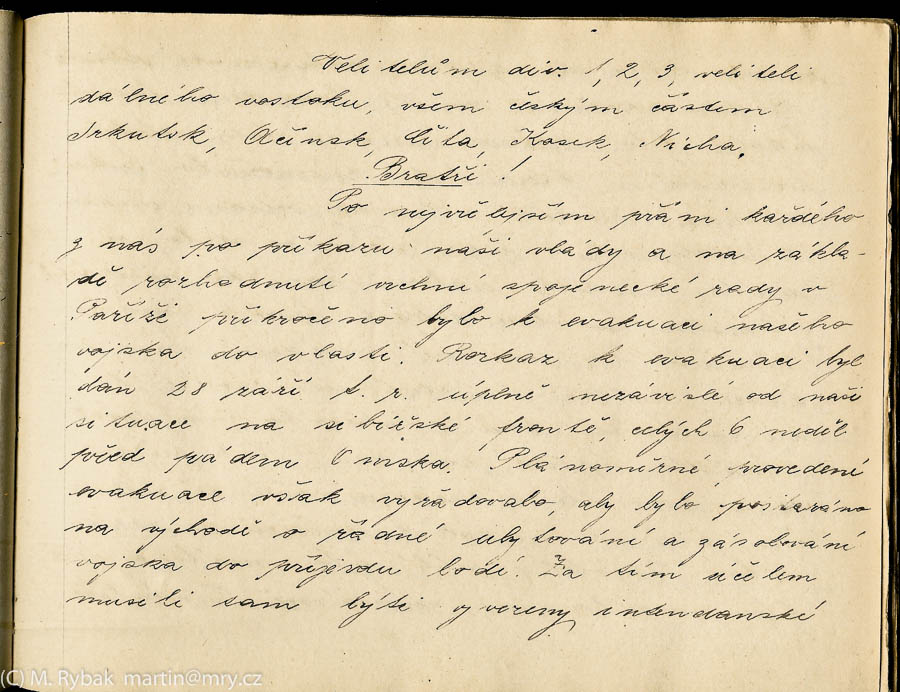 Velitelům div. 1, 2, 3, veliteli
dálného vostoku, všem českým částem
Irkutsk, Ačinsk, Čita, Kosek, Nicha.
Bratři!
Po nejvělejším přání každého
z nás po příkazu naší vlády a na zákla-
dě rozhodnutí vrchní spojenecké rady v
Paříži přikročeno bylo k evakuaci našeho
vojska do vlasti. Rozkaz k evakuaci byl
dán 28 září t. r. úplně nezávislé od naší
situace na sibiřské frontě, celých 6 neděl
před pádem Omska. Plánoměrné provedení
evakuace však vyžadovalo, aby bylo postaráno
na východě o řádné ubytování a zásobování
vojska do příjezdu lodí. Za tím účelem
musili tam býti vyvezeny intendanské
(C) M. Rybak martin@mry.cz